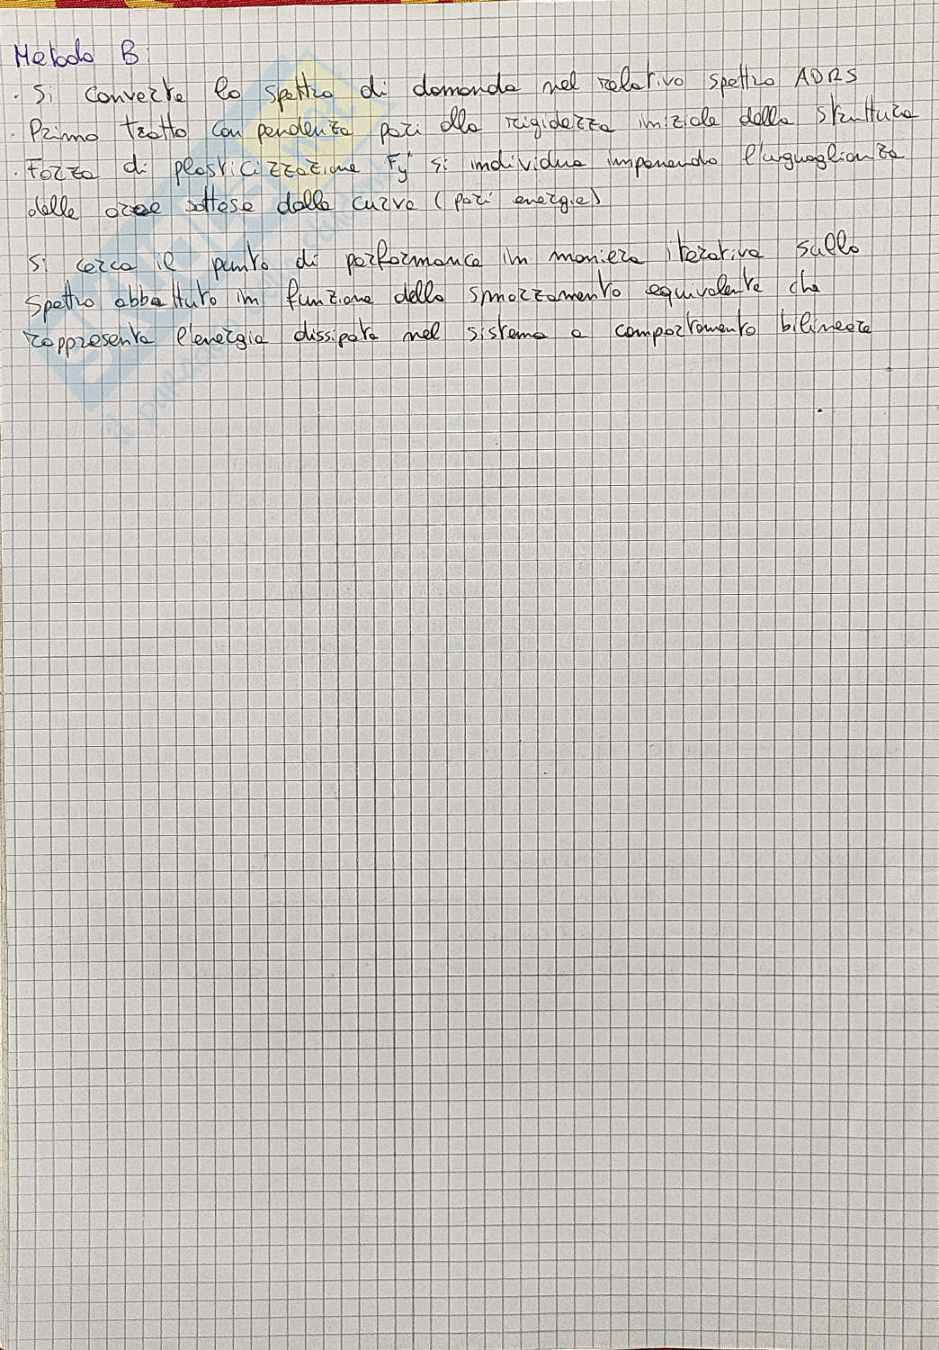 Metodo B:
· Si converte lo spettro di domanda nel relativo spettro ADRS
· Primo tratto con pendenza pari alla rigidezza iniziale della struttura
· Forza di plasticizzazione Fy* si individua imponendo l'uguaglianza
delle aree sottese dalle curve (pari energie)
Si cerca il punto di performance in maniera iterativa sullo
spettro abbattuto in funzione dello smorzamento equivalente che
rappresenta l'energia dissipata nel sistema a comportamento bilineare